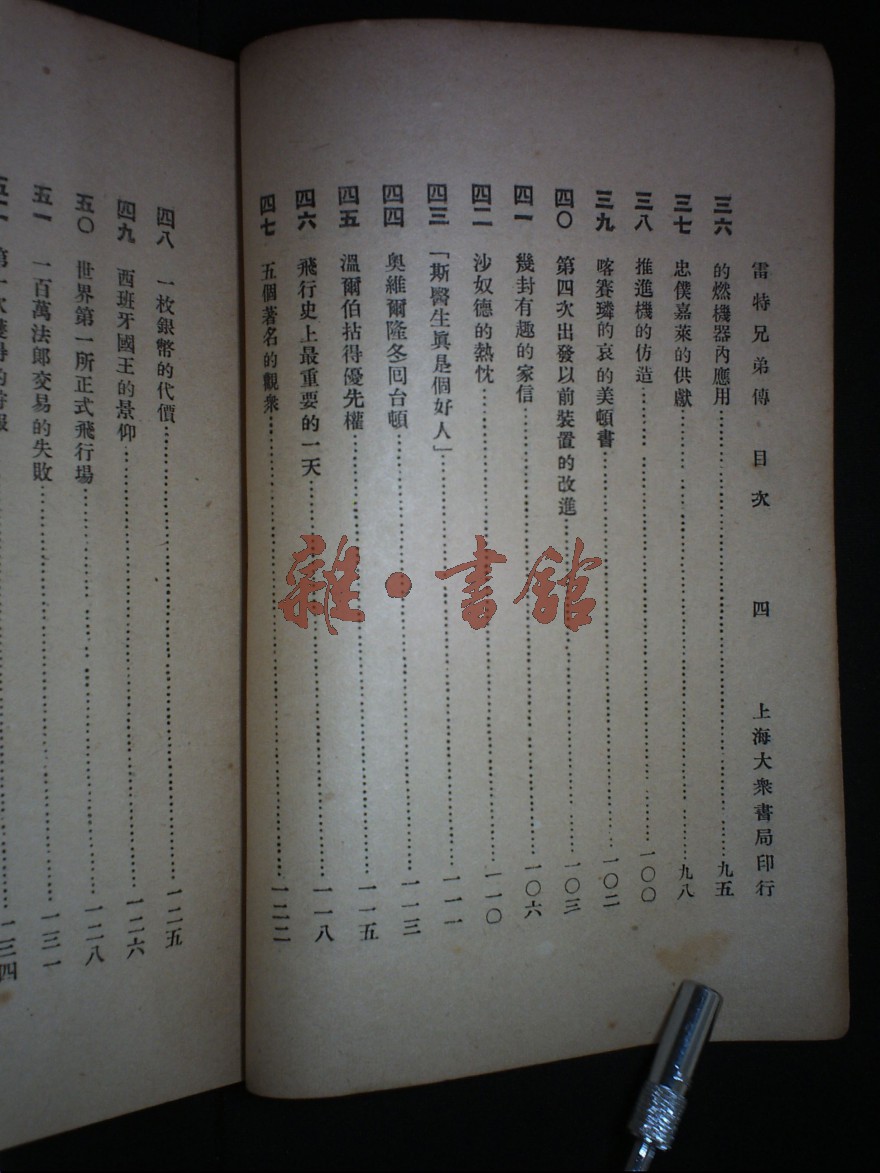 雷特兄弟傳 目次 四 上海大衆書局印行
三六 的燃機器內應用 九五
三七 忠僕嘉萊的供獻 九八
三八 推進機的仿造 一〇〇
三九 喀賽璘的哀的美頓書 一〇二
四〇 第四次出發以前裝置的改進 一〇三
四一 幾封有趣的家信 一〇六
四二 沙奴德的熱忱 一一〇
四三 「斯醫生眞是個好人」 一一一
四四 奧維爾隆冬囘台頓 一一三
四五 溫爾伯拈得優先權 一一五
四六 飛行史上最重要的一天 一一八
四七 五個著名的觀衆 一二二
四八 一枚銀幣的代價 一二五
四九 西班牙國王的景仰 一二六
五〇 世界第一所正式飛行場 一二八
五一 一百萬法郞交易的失敗 一三一
第一次 一三四
雜·書館